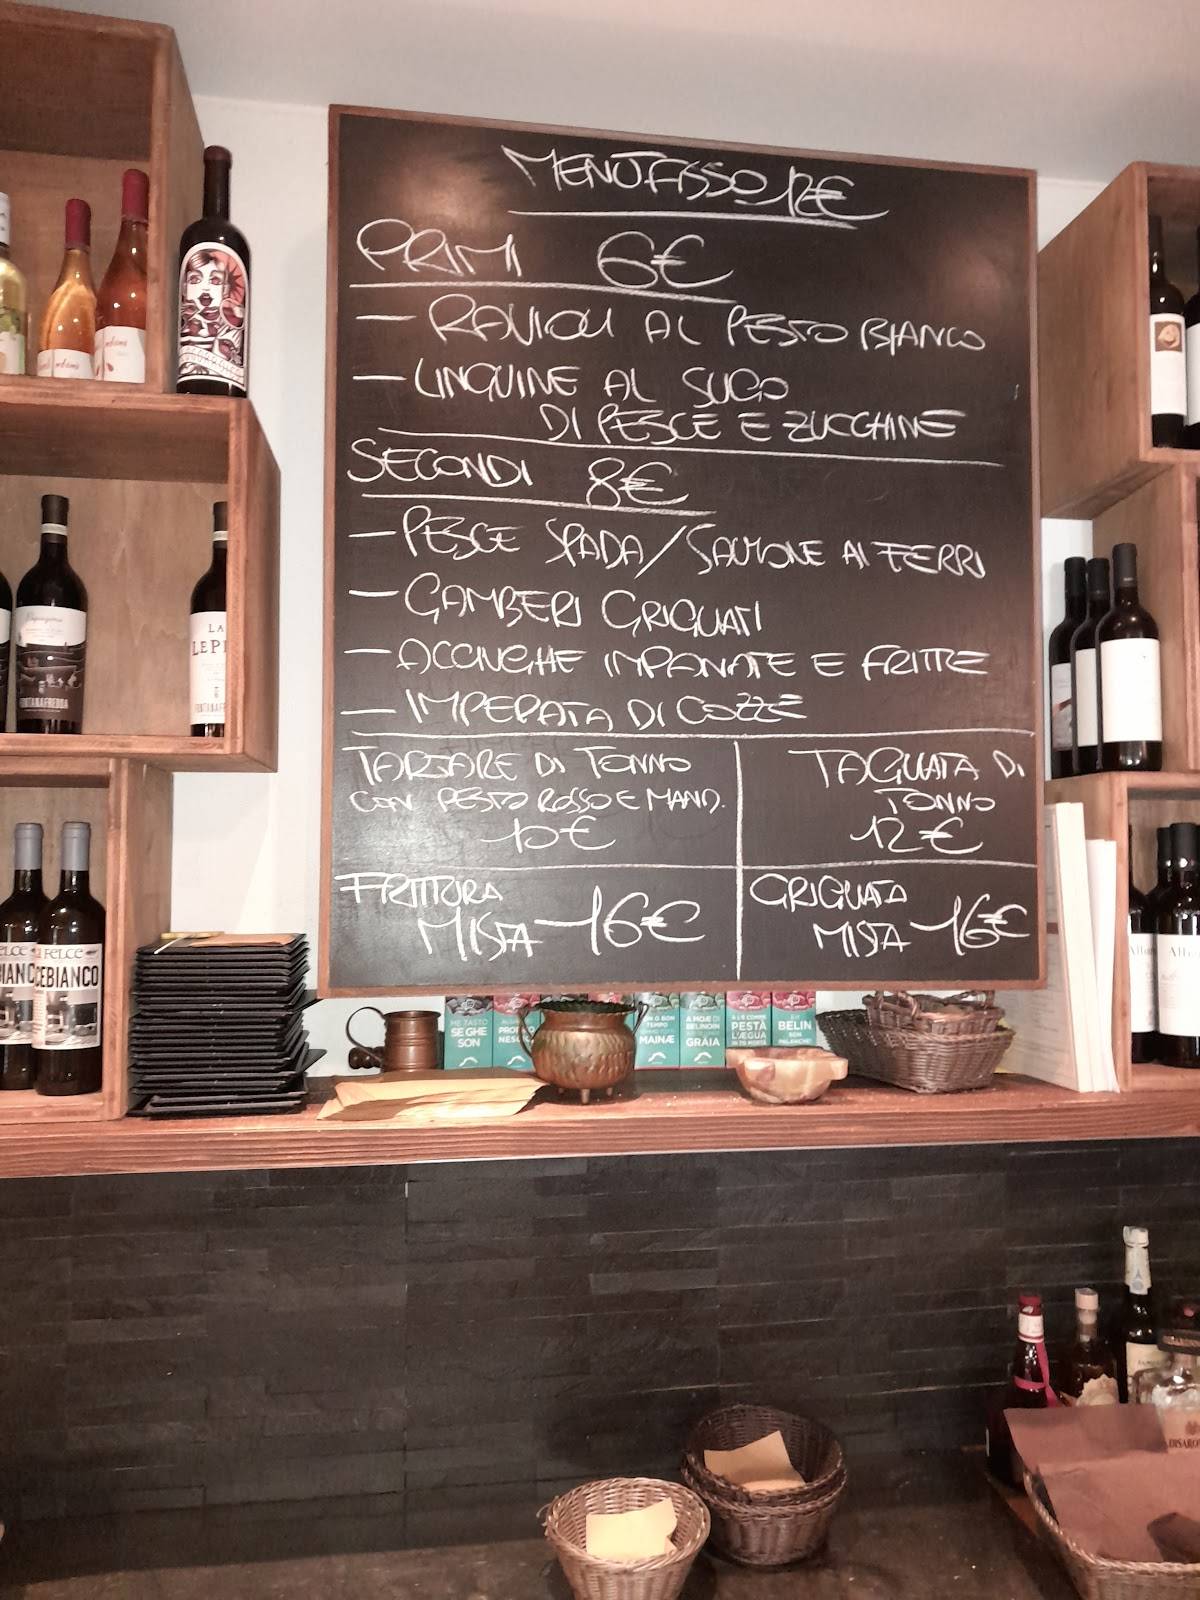 MENU FISSO 12€
PRIMI 6€
— RAVIOLI AL PESTO BIANCO
— LINGUINE AL SUGO
DI PESCE E ZUCCHINE
SECONDI 8€
— PESCE SPADA/SALMONE AI FERRI
— GAMBERI GRIGLIATI
— ACCIUGHE IMPANATE E FRITTE
— IMPEPATA DI COZZE
TARTARE DI TONNO
CON PESTO ROSSO E MAND.
10€
TAGLIATA DI
TONNO
12€
FRITTURA
MISTA — 16€
GRIGLIATA
MISTA — 16€
LA
LEP
FONTANAFREDDA
FELCE
BIANC
CEBIANCO
ME TASTO
SE GHE
SON
MAINÆ
A MOJE DI
BELINOIN
GRÀIA
PESTÀ
L'ÆGUA
BELIN